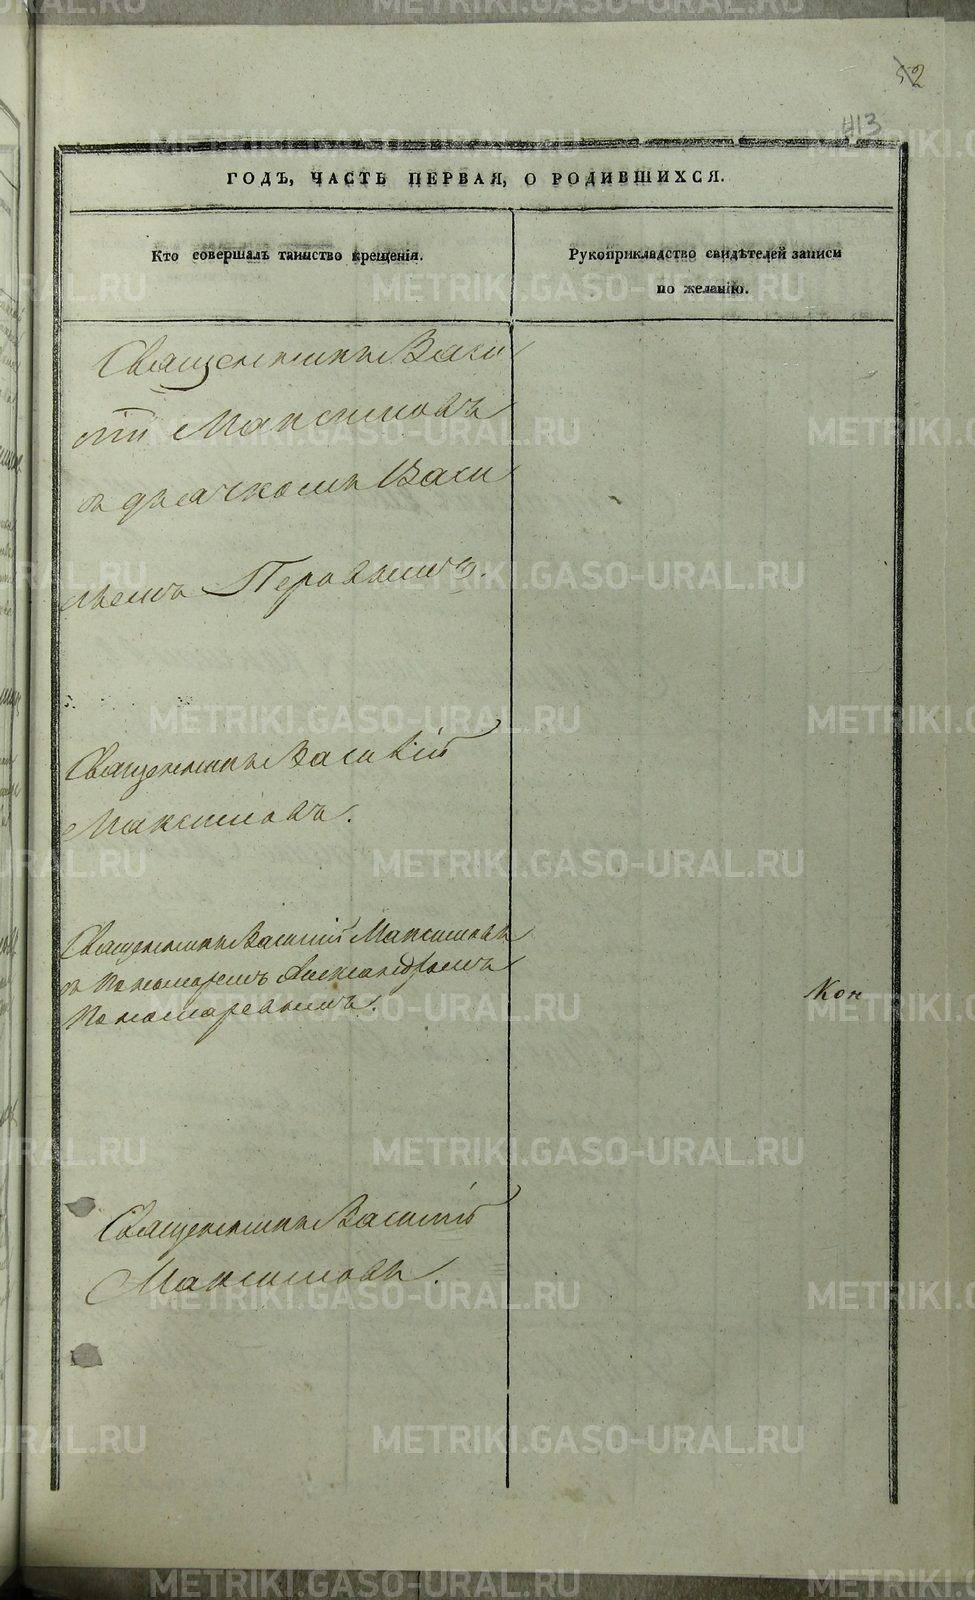 52
413
ГОДЪ, ЧАСТЬ ПЕРВАЯ, О РОДИВШИХСЯ.
Кто совершалъ таинство крещенія.
Рукоприкладство свидѣтелей записи
по желанію.
Священникъ Васи
лій Максимовъ
съ дьячкомъ Васи
льемъ Первымъ.
Священникъ Василій
Максимовъ.
Священникъ Василій Максимовъ
съ Пономаремъ Александромъ
Пономаревымъ.
Кон
Священникъ Василій
Максимовъ.
METRIKI.GASO-URAL.RU